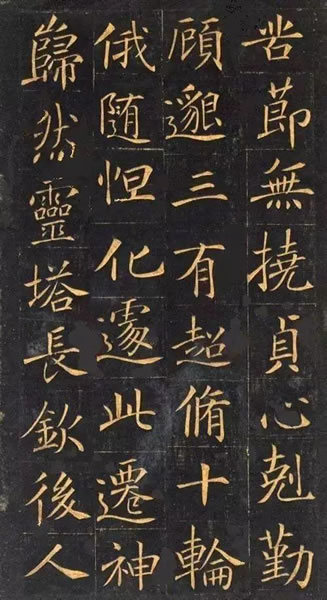 苦莭無撓貞心尅勤
顧邈三有超脩十輪
俄随怛化遽此遷神
巋然靈塔長欽後人